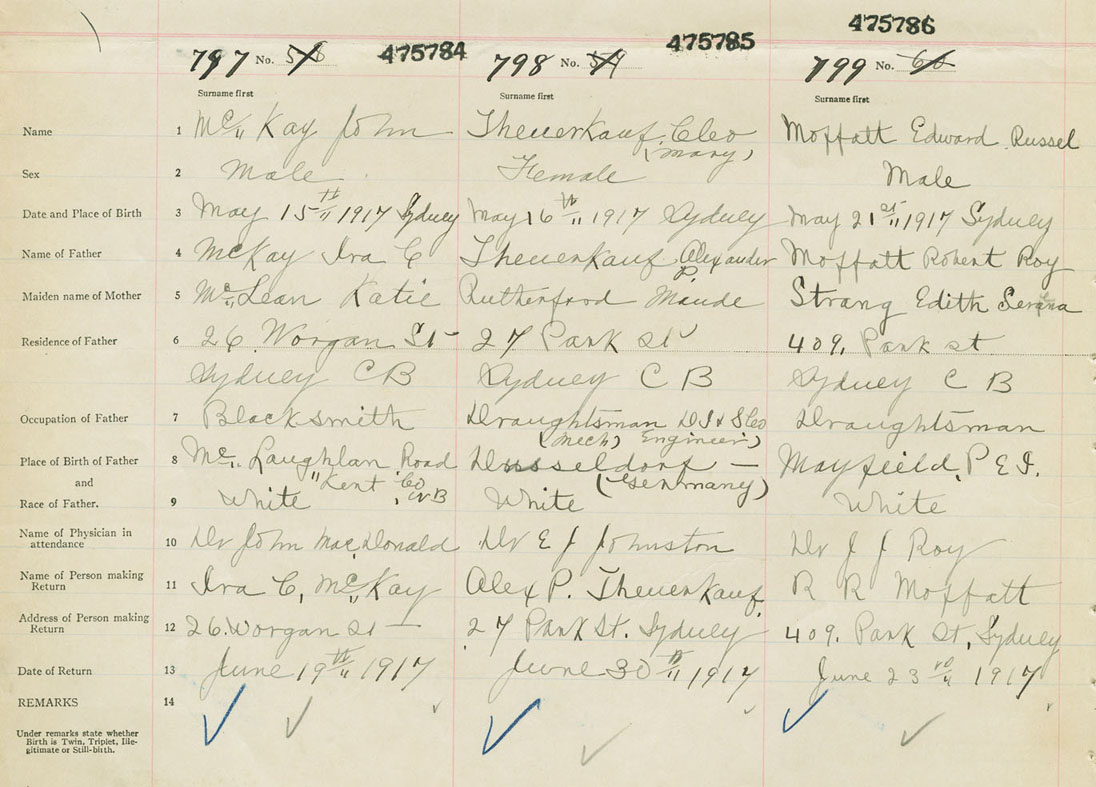 475784 475785 475786
797 No. 58 798 No. 59 799 No. 60
Surname first Surname first Surname first
Name 1 McKay John Theuerkauf, Cleo Moffatt Edward Russel
(Mary)
Sex 2 Male Female Male
Date and Place of Birth 3 May 15th 1917 Sydney May 16th 1917 Sydney May 21st 1917 Sydney
Name of Father 4 McKay Ira C Theuerkauf Alexander Moffatt Robert Roy
P.
Maiden name of Mother 5 McLean Katie Rutherford Maude Strang Edith Serena
Residence of Father 6 26 Worgan St 27 Park St 409, Park St
Sydney C B Sydney C B Sydney C B
Occupation of Father 7 Blacksmith Draughtsman D I & S Co Draughtsman
(Mech, Engineer)
Place of Birth of Father 8 Mc Laughlan Road Dusseldorf — Mayfield, P E I.
and Kent Co N B (Germany)
Race of Father. 9 White White White
Name of Physician in
attendance 10 Dr John MacDonald Dr E J Johnston Dr J J Roy
Name of Person making
Return 11 Ira C, McKay Alex P. Theuerkauf R R Moffatt
Address of Person making
Return 12 26 Worgan St — 27 Park St. Sydney 409. Park St, Sydney
Date of Return 13 June 19th 1917 June 30th 1917 June 23rd 1917
REMARKS 14
Under remarks state whether
Birth is Twin, Triplet, Ille-
gitimate or Still-birth.